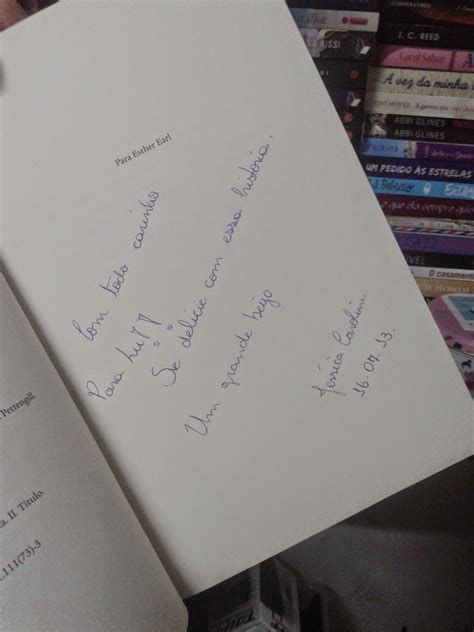 Para Esther Earl
Com todo carinho
Para Lu!!
Se delicie com essa história.
Um grande beijo
Jéssica Caroline
16.07.13.
Pettengill.
a. II. Título.
.111(73)-3
J. C. REED
Carol Sabar
A vez da minha
ABBI GLINES
ABBI GLINES
UM PEDIDO ÀS ESTRELAS
o que ela sempre quis
O casamento